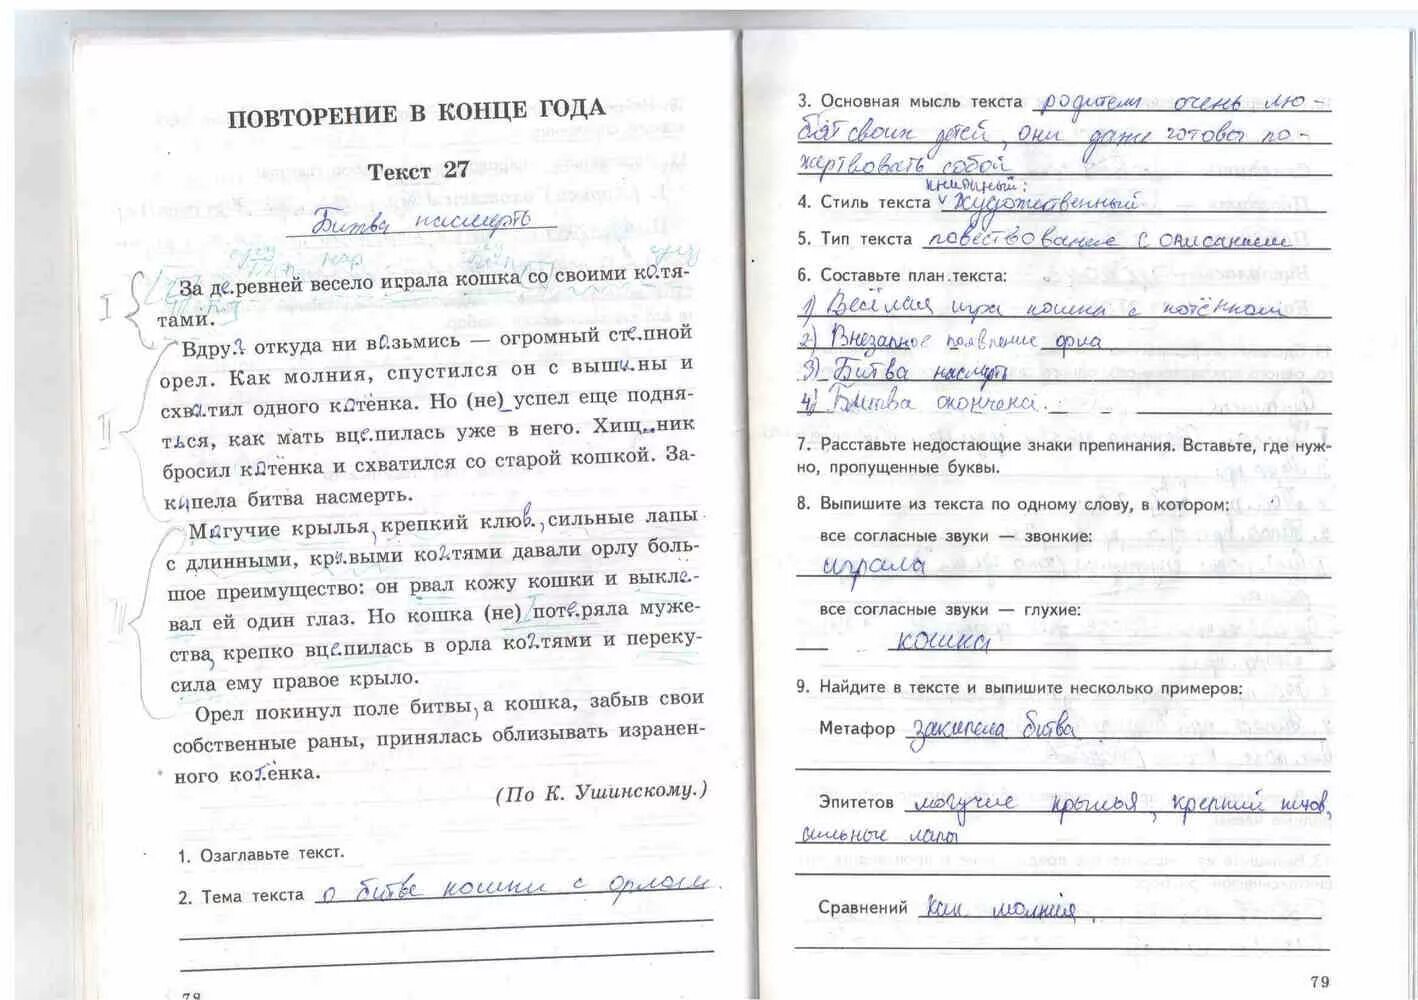 ПОВТОРЕНИЕ В КОНЦЕ ГОДА
Текст 27
Битва насмерть
I
За деревней весело играла кошка со своими котя-
тами.
II
Вдруг откуда ни возьмись — огромный степной
орел. Как молния, спустился он с вышины и
схватил одного котёнка. Но (не) успел еще подня-
ться, как мать вцепилась уже в него. Хищ..ник
бросил котёнка и схватился со старой кошкой. За-
кипела битва насмерть.
III
Могучие крылья, крепкий клюв, сильные лапы
с длинными, кривыми когтями давали орлу боль-
шое преимущество: он рвал кожу кошки и выкле-
вал ей один глаз. Но кошка (не) потеряла муже-
ства, крепко вцепилась в орла когтями и переку-
сила ему правое крыло.
Орел покинул поле битвы, а кошка, забыв свои
собственные раны, принялась облизывать изранен-
ного котёнка.
(По К. Ушинскому.)
1. Озаглавьте текст.
2. Тема текста о битве кошки с орлом.
78
3. Основная мысль текста родители очень лю-
бят своих детей, они даже готовы по-
жертвовать собой
книжный:
4. Стиль текста художественный
5. Тип текста повествование с описанием
6. Составьте план текста:
1) Весёлая игра кошки с котёнком
2) Внезапное появление орла
3) Битва насмерть
4) Битва окончена.
7. Расставьте недостающие знаки препинания. Вставьте, где нуж-
но, пропущенные буквы.
8. Выпишите из текста по одному слову, в котором:
все согласные звуки — звонкие:
играла
все согласные звуки — глухие:
кошка
9. Найдите в тексте и выпишите несколько примеров:
Метафор закипела битва
Эпитетов могучие крылья, крепкий клюв,
сильные лапы
Сравнений как молния.
79